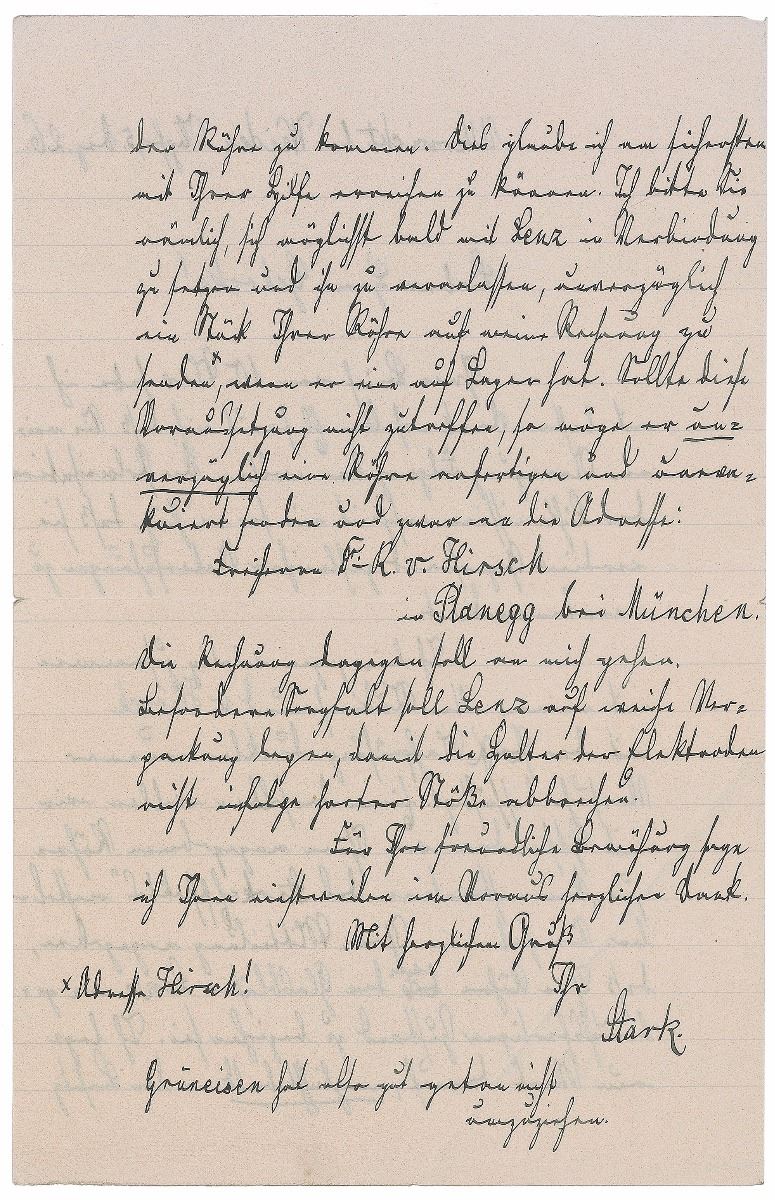 der Röhre zu kommen. Dies glaube ich am sichersten
mit Ihrer Hilfe erreichen zu können. Ich bitte Sie
nämlich, sich möglichst bald mit Lenz in Verbindung
zu setzen und ihn zu veranlassen, unverzüglich
ein Stück Ihrer Röhre auf meine Rechnung zu
senden ˣ, wenn er eine auf Lager hat. Sollte diese
Voraussetzung nicht zutreffen, so möge er un=
verzüglich eine Röhre anfertigen und uneva=
kuiert senden und zwar an die Adresse:
Freiherrn F. K. v. Hirsch
in Planegg bei München.
Die Rechnung dagegen soll an mich gehen.
Besondere Sorgfalt soll Lenz auf weiche Ver=
packung legen, damit die Halter der Elektroden
nicht infolge harter Stöße abbrechen.
Für Ihre freundliche Bemühung sage
ich Ihnen einstweilen im Voraus herzlichen Dank.
Mit herzlichem Gruß
Ihr
x Adresse Hirsch!
Stark.
Grüneisen hat also gut getan nicht
umzuziehen.